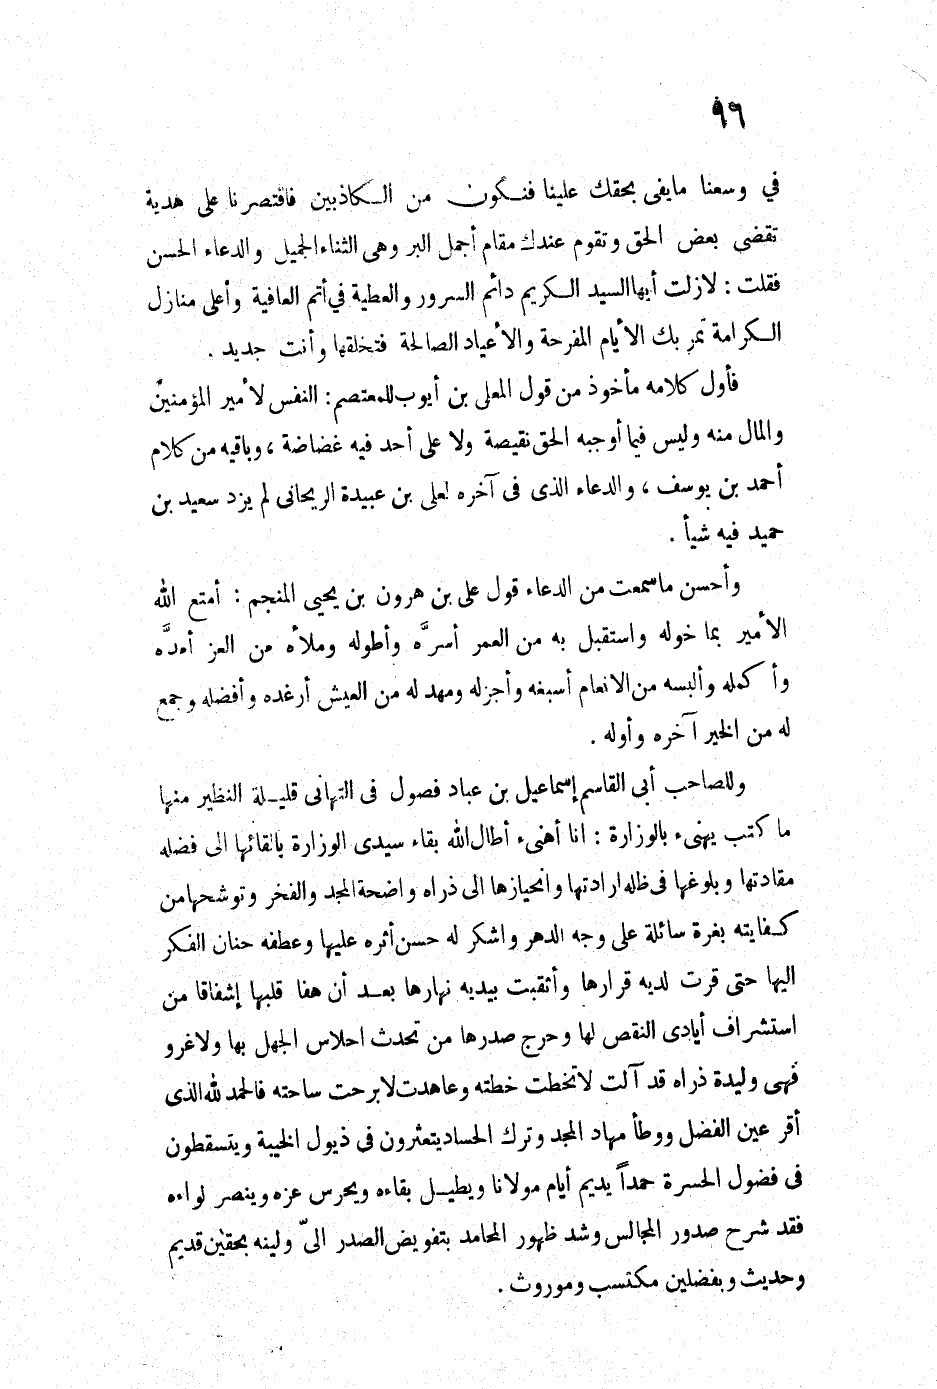 ٩٦
في وسعنا مايفى بحقك علينا فنكون من الكاذبين فاقتصرنا على هدية
تقضى بعض الحق وتقوم عندك مقام أجمل البر وهى الثناء الجميل والدعاء الحسن
فقلت : لازلت أيها السيد الكريم دائم السرور والعطية في أتم العافية وأعلى منازل
الكرامة تمر بك الأيام المفرحة والأعياد الصالحة فتخلقها وأنت جديد .
فأول كلامه مأخوذ من قول المعلى بن أيوب للمعتصم : النفس لأمير المؤمنين
والمال منه وليس فيما أوجبه الحق نقيصة ولا على أحد فيه غضاضة ، وباقيه من كلام
أحمد بن يوسف ، والدعاء الذى فى آخره لعلى بن عبيدة الريحانى لم يزد سعيد بن
حميد فيه شيأ .
وأحسن ماسمعت من الدعاء قول على بن هرون بن يحيى المنجم : أمتع الله
الأمير بما خوله واستقبل به من العمر أسرَّه وأطوله وملأه من العز أمدَّه
وأكمله وألبسه من الانعام أسبغه وأجزله ومهد له من العيش أرغده وأفضله وجمع
له من الخير آخره وأوله .
وللصاحب أبى القاسم إسماعيل بن عباد فصول فى التهانى قليلة النظير منها
ما كتب يهنىء بالوزارة : انا أهنىء أطال الله بقاء سيدى الوزارة بالقائها الى فضله
مقادتها وبلوغها فى ظله ارادتها وانحيازها الى ذراه واضحة المجد والفخر وتوشحها من
كفايته بغرة سائلة على وجه الدهر واشكر له حسن أثره عليها وعطفه حنان الفكر
اليها حتى قرت لديه قرارها وأثقبت بيديه نهارها بعد أن هفا قلبها إشفاقا من
استشراف أيادى النقص لها وحرج صدرها من تحدث احلاس الجهل بها ولاغرو
فهى وليدة ذراه قد آلت لاتخطت خطته وعاهدت لابرحت ساحته فالحمد لله الذى
أقر عين الفضل ووطأ مهاد المجد وترك الحساد يتعثرون فى ذيول الخيبة ويتسقطون
فى فضول الحسرة حمداً يديم أيام مولانا ويطيل بقاءه ويحرس عزه وينصر لواءه
فقد شرح صدور المجالس وشد ظهور المحامد بتفويض الصدر الىّ ولينه بحقين قديم
وحديث وبفضلين مكتسب وموروث .